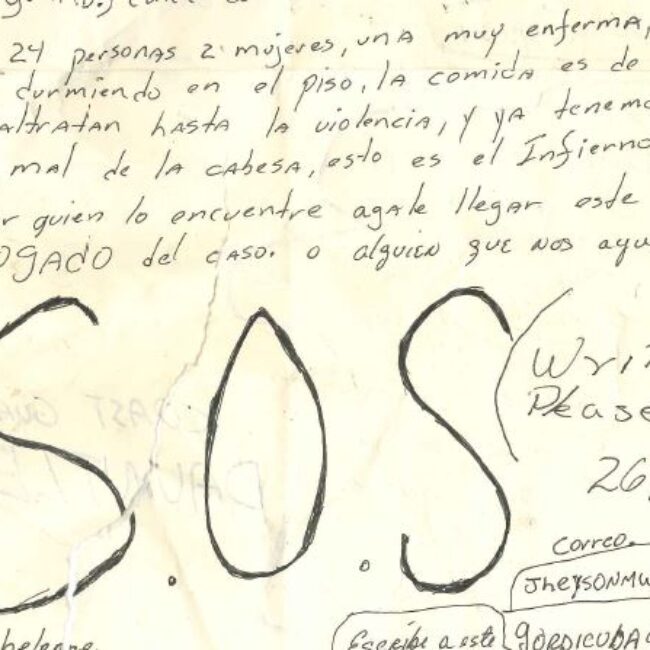 24 personas 2 mujeres, una muy enferma,
durmiendo en el piso, la comida es de
altratan hasta la violencia, y ya tenemo
mal de la cabesa, esto es el Infierno
r quien lo encuentre agale llegar este
OGADO del caso. o alguien que nos ayu
S.O.S
Wri
Please
26
correo.
JheysonMu
Escribe a este gordicuba